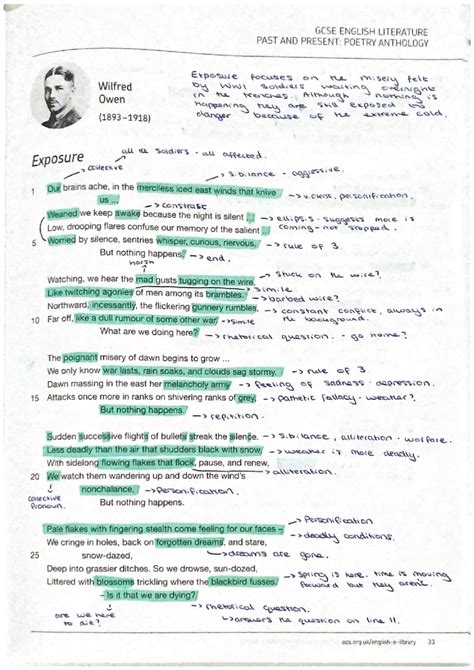 GCSE ENGLISH LITERATURE
PAST AND PRESENT: POETRY ANTHOLOGY
Wilfred
Owen
(1893–1918)
Exposure focuses on the misery felt
by WW1 soldiers waiting overnight
in the trenches. Although nothing is
happening they are still exposed to
danger because of the extreme cold.
Exposure
all the soldiers - all affected.
collective
sibilance - aggressive.
1 Our brains ache, in the merciless iced east winds that knive
us ...
→ violent, personification.
→ constrast
Wearied we keep awake because the night is silent ...
→ ellipsis - suggests more is
coming - not stopped.
Low, drooping flares confuse our memory of the salient ...
5 Worried by silence, sentries whisper, curious, nervous,
→ rule of 3
But nothing happens.
→ end.
harsh
Watching, we hear the mad gusts tugging on the wire,
→ stuck on the wire?
Like twitching agonies of men among its brambles.
→ simile
→ barbed wire?
Northward, incessantly, the flickering gunnery rumbles,
→ constant conflict, always in
the background.
10 Far off, like a dull rumour of some other war.
→ simile
What are we doing here?
→ rhetorical question. - go home?
The poignant misery of dawn begins to grow ...
We only know war lasts, rain soaks, and clouds sag stormy.
→ rule of 3.
Dawn massing in the east her melancholy army
→ feeling of sadness - depression.
15 Attacks once more in ranks on shivering ranks of grey,
→ pathetic fallacy - weather?
But nothing happens.
→ repitition.
Sudden successive flights of bullets streak the silence.
→ sibilance, alliteration - warfare.
Less deadly than the air that shudders black with snow,
→ weather is more deadly.
With sidelong flowing flakes that flock, pause, and renew,
→ alliteration.
20 We watch them wandering up and down the wind's
nonchalance,
→ Personification.
collective
pronoun.
But nothing happens.
→ Personification
Pale flakes with fingering stealth come feeling for our faces –
→ deadly conditions.
We cringe in holes, back on forgotten dreams, and stare,
25 snow-dazed,
→ dreams are gone.
Deep into grassier ditches. So we drowse, sun-dozed,
→ Spring is here. time is moving
forward but they arent.
Littered with blossoms trickling where the blackbird fusses.
– Is it that we are dying?
→ rhetorical question.
→ answers the question on line 11.
are we here
to die?
aqa.org.uk/english-e-library 33